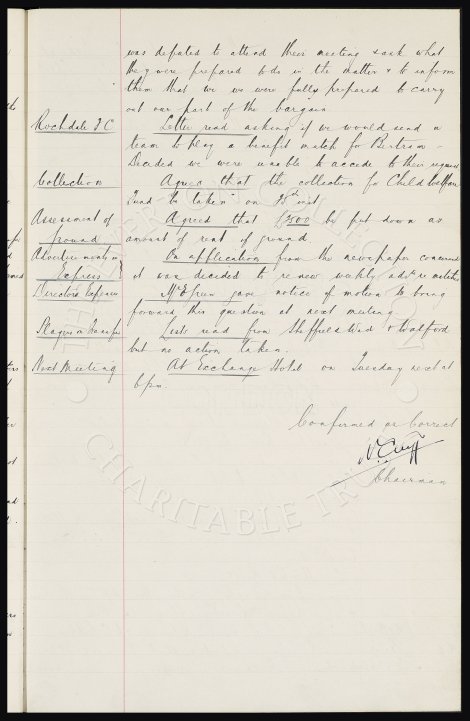 was deputed to attend their meeting & ask what
they were prepared to do in the matter & to inform
them that we were fully prepared to carry
out our part of the bargain
Rochdale F C Letter read asking if we would send a
team to play a benefit match for Bertram -
Decided we were unable to accede to their request
Collection Agreed that the collection for Child Welfare
Fund be taken on inst
Assessment of ground Agreed that £500 be put down as
amount of rent of ground.
Advertisements in express On application from the newspaper concerned
it was decided to renew weekly advt re matches
Directors Expenses Mr gave notice of motion to bring
forward this question at next meeting
Players on transfer Lists read from Sheffield Wed & Watford
but no action taken.
Next Meeting At Exchange Hotel on Tuesday next at
6 pm
Confirmed as Correct
Chairman
CHARITABLE